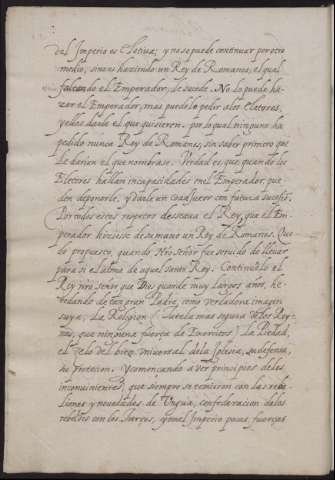 del Imperio es Electiua; y no se puede continuar por otro
medio, sino es haziendo un Rey de Romanos, el qual
faltando el Emperador, le sucede. No lo puede ha-
zer el Emperador, mas puedelo pedir a los Eletores,
y ellos darle el que quisieren. por lo qual ninguno ha
pedido nunca Rey de Romanos, sin saber primero que
le darian el que nombrase. Verdad es que quando los
Eletores hallan incapacidades en el Emperador, pue
den deponerle, y darle un coadjutor con futura sucesion.
Por todos estos respetos deseaua el Rey, que el Em-
perador hiziesse de su mano un Rey de Romanos. Que
lo propuesto, quando Nro Señor fue seruido de lleuar
para si el alma de aquel Santo Rey. Continuolo el
Rey nro Señor que Dios guarde muy largos años, he-
redando de tan gran Padre, como verdadera imagen
suya, la Religion (tutela mas segura de los Rey-
nos, que ninguna fuerça de Exercitos) la Piedad,
el zelo del bien vniuersal de la Iglesia, su defensa,
su protecion. Y començando a ver principios de los
inconuinientes, que siempre se temieron con las rebe-
liones y nouedades de Ungria, confederacion de los
rebeldes con los Turcos, y en el Imperio pocas fuerças